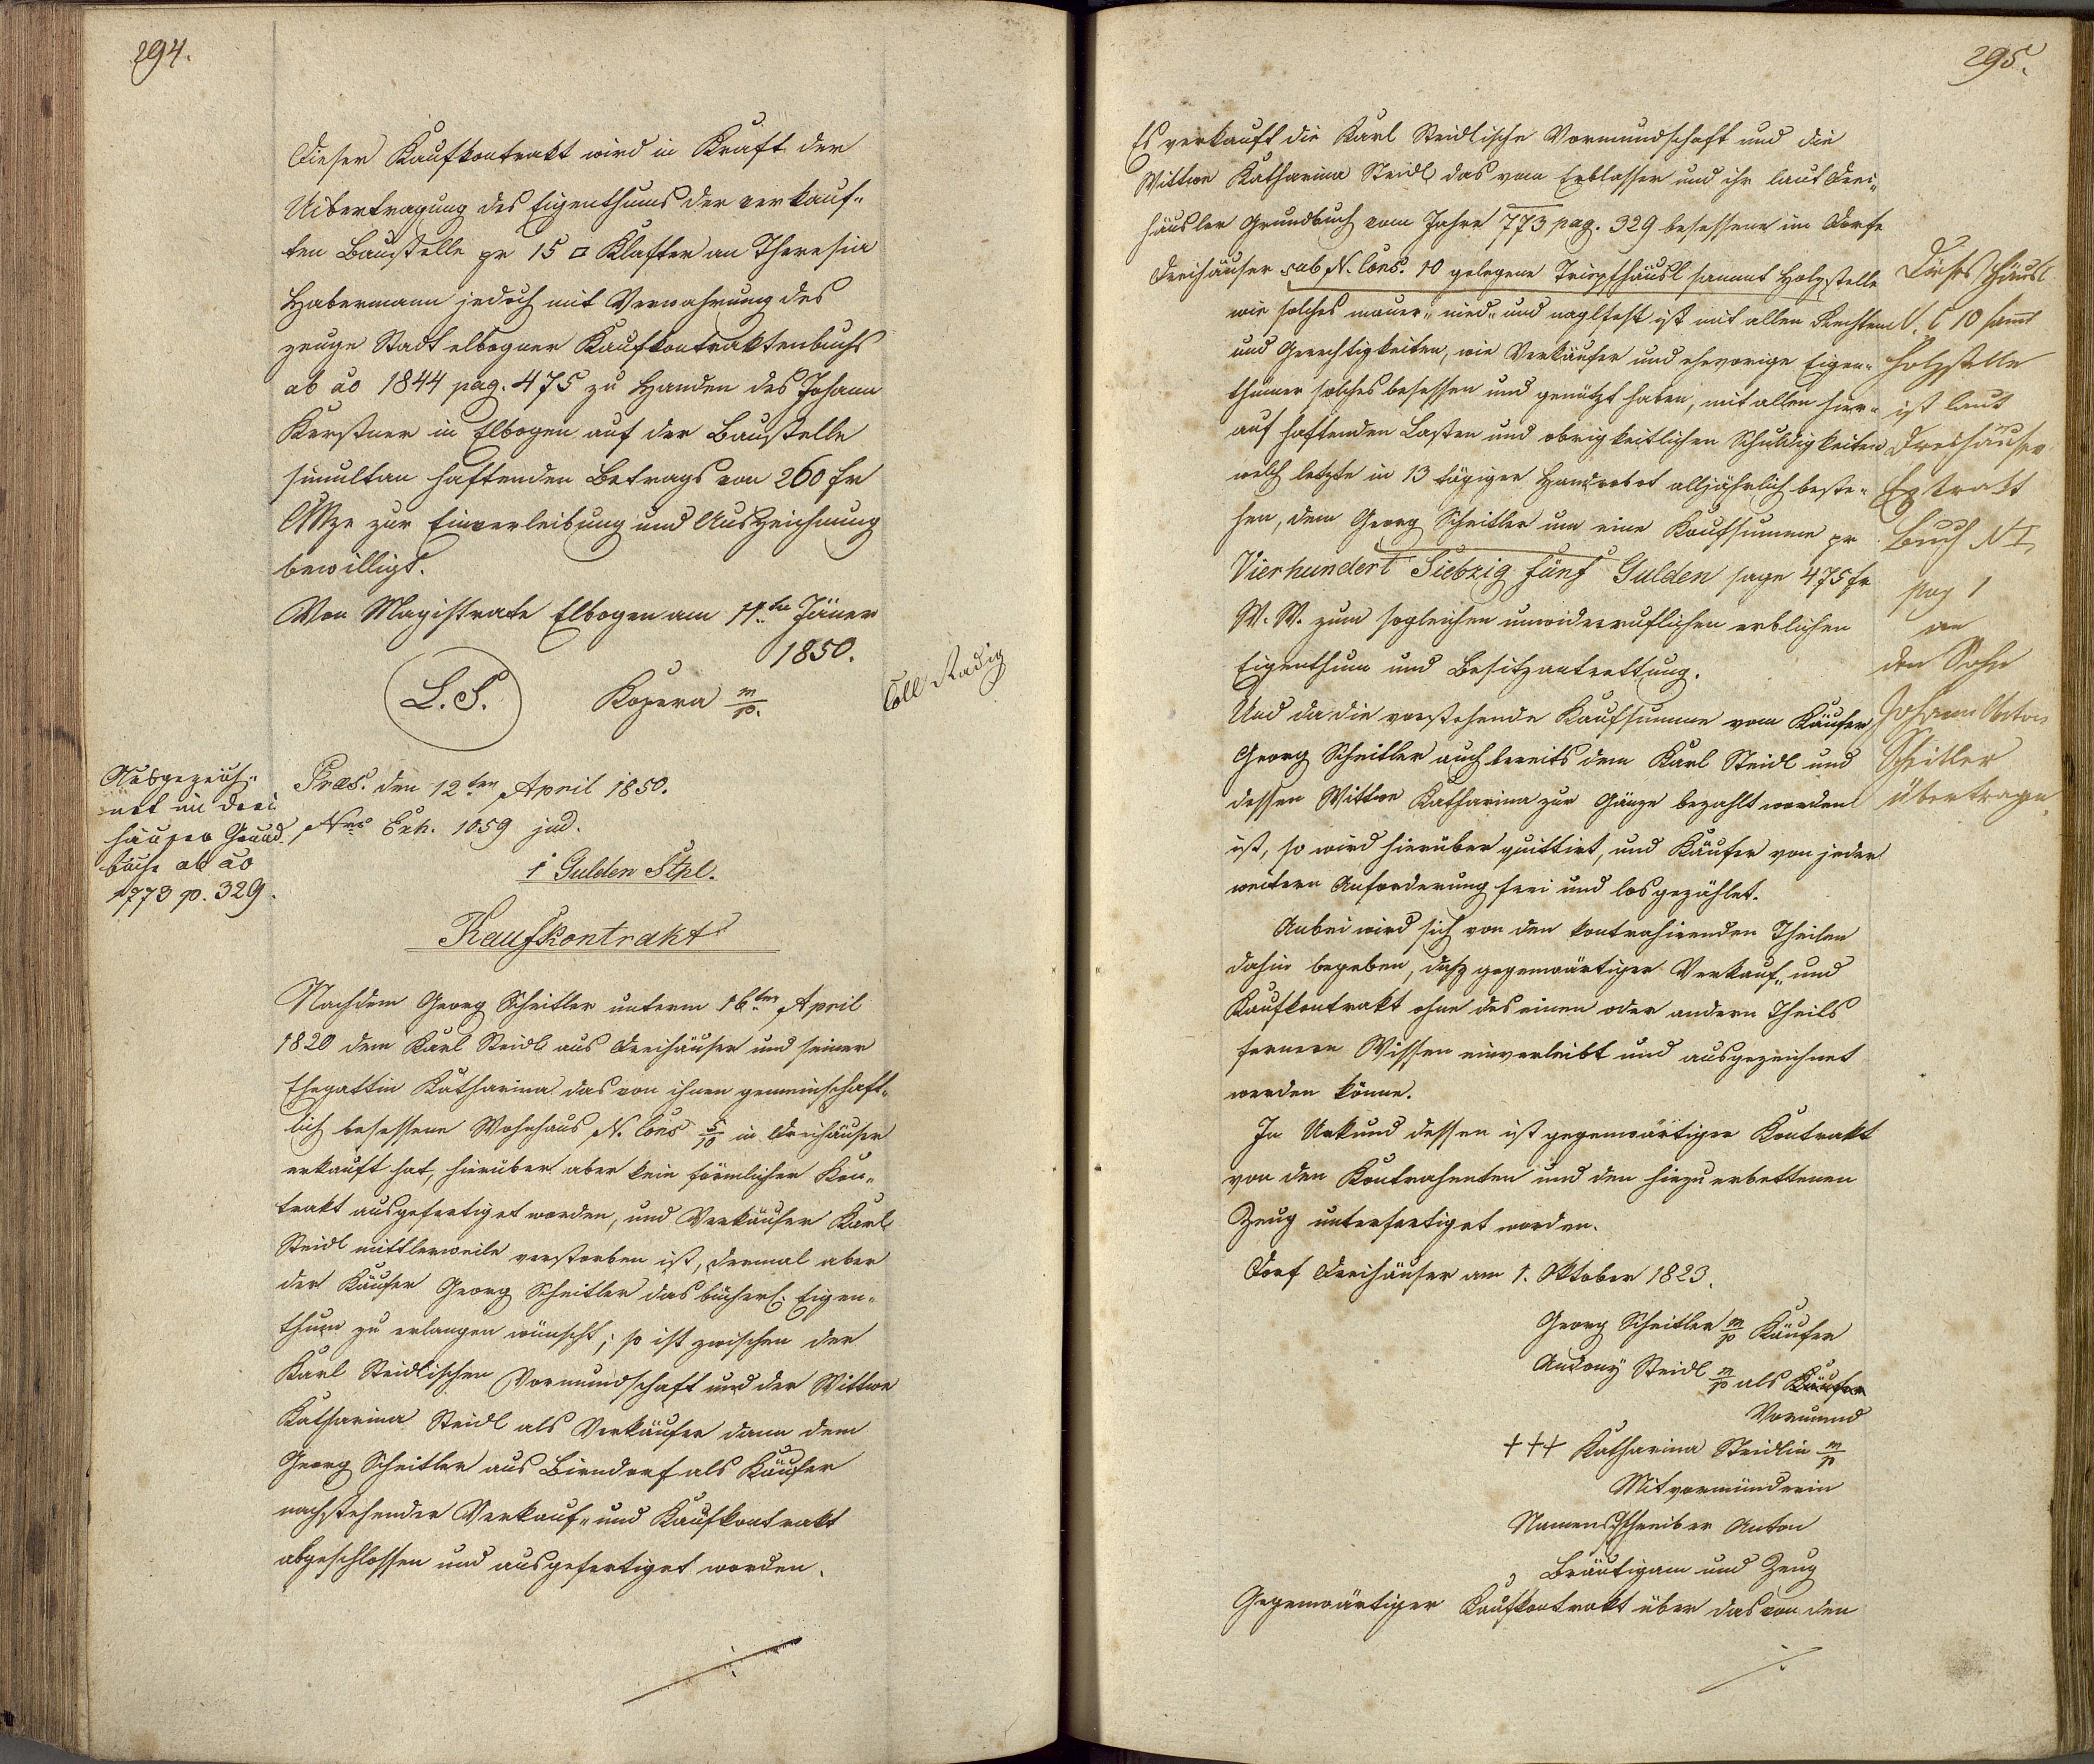 294.
Dieser Kaufkontrakt wird in Kraft der
Uibertragung des Eigenthums der verkauf„
ten Baustelle pr 15 □ Klafter an Theresia
Habermann jedoch mit Verwahrung des
zeuge Stadt elbogner Kaufkontraktenbuchs
ab ao 1844 pag. 475 zu Handen des Johann
Kerstner in Elbogen auf der Baustelle
simultan haftenden Betrags von 260 fr
CMze zur Einverleibung und Auszeichnung
bewilligt.
Von Magistrate Elbogen am 11ten Jäner
1850.
L.S. Kozera m/p.
Coll Radig
Ausgezeich„
net im Drei
häuser Grund
buche ab ao
1773 p. 329.
Præs. den 12ten April 1850.
Nro Exh. 1059 jud.
1 Gulden Stpl.
Kaufkontrakt
Nachdem Georg Scheitler unterm 16ten April
1820 dem Karl Steidl aus Dreihäuser und seiner
Ehegattin Katharina das von ihnen gemeinschaft„
lich besessene Wohnhaus N. Cons 5/10 in Dreihäuser
erkauft hat, hierüber aber kein förmlicher Kon„
trakt ausgefertiget worden, und Verkäufer Karl
Steidl mittlerweile verstorben ist, dermal aber
der Käufer Georg Scheitler das bücherl. Eigen„
thum zu erlangen wünscht; so ist zwischen der
Karl Steidlischen Vormundschaft und der Wittwe
Katharina Steidl als Verkäufer dann dem
Georg Scheitler aus Birndorf als Käufer
nachstehender Verkauf„ und Kaufkontrakt
abgeschlossen und ausgefertiget worden.
295.
Es verkauft die Karl Steidlische Vormundschaft und die
Wittwe Katharina Steidl das vom Erblasser und ihr laut Drei„
häusler Grundbuch vom Jahre 773 pag. 329 besessene im Dorfe
Dreihäuser sub N. Cons. 10 gelegene Tripfhäusl sammt Holzstelle
wie solches mauer„ nied„ und naglfest ist mit allen Rechten
und Gerechtigkeiten, wie Verkäufer und ehevorige Eigen„
thümer solches besessen und genützt haben, mit allen hier„
auf haftenden Lasten und obrigkeitlichen Schuldigkeiten
welch letzte in 13 tägiger Handrobot alljährlich beste„
hen, dem Georg Scheitler um eine Kaufsumme pr
Vierhundert Siebzig fünf Gulden sage 475 fr
W. W. zum sogleichen unwiderruflichen erblichen
Eigenthum und Besitzantrettung.
Und da die vorstehende Kaufsumme vom Käufer
Georg Scheitler auch bereits dem Karl Steidl und
dessen Wittwe Katharina zur Gänze bezahlt worden
ist, so wird hierüber quittirt, und Käufer von jeder
weitern Anforderung frei und losgezählet.
Anbei wird sich von den kontrahirenden Theilen
dahin begeben, daß gegenwärtiger Verkauf„ und
Kaufkontrakt ohne des einen oder andern Theils
fernern Wissen einverleibt und ausgezeichnet
werden könne.
In Urkund dessen ist gegenwärtiger Kontrakt
von den Kontrahenten und den hiezu erbettenen
Zeug unterfertiget worden.
Dorf Dreihäuser am 1. Oktober 1823.
Georg Scheitler m/p Käufer
Andony Steidl m/p als Käufer
Vormund
+++ Katharina Steidlin m/p
Mitvormünderin
Namensschreiber Anton
Bräutigam und Zeug
Gegenwärtiger Kaufkontrakt über das von den
Dieses Häusl
N. C 10 samt
Holzstelle
ist laut
Dreihäuser
Extrakt
Buch N I,
pag 1
an
den Sohn
Johann Anton
Scheitler
übertragen